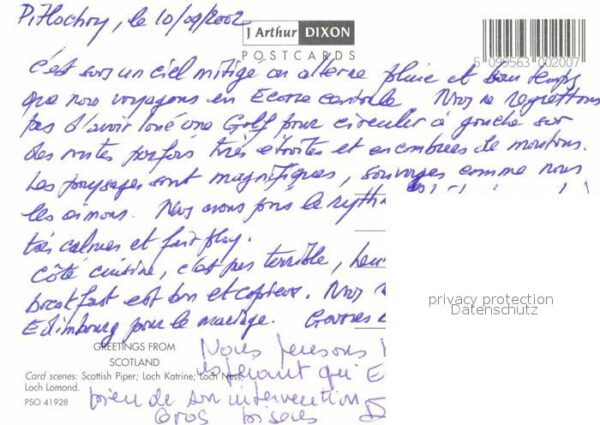 Pitlochry, le 10/09/2002
J Arthur DIXON
POSTCARDS
5 099563 002007
C'est sous un ciel mitigé où alterne pluie et beau temps
que nous voyageons en Ecosse centrale. Nous ne regrettons
pas d'avoir loué une Golf pour circuler à gauche sur
des routes parfois très étroites et encombrées de moutons.
Les paysages sont magnifiques, sauvages comme nous
les aimons. Nous avons pris le ryth
très calmes et fair play.
Côté cuisine, c'est pas terrible,
breakfast est bon et copieux. Nous
Edimbourg pour le mariage.
privacy protection
Datenschutz
GREETINGS FROM
SCOTLAND
Card scenes: Scottish Piper; Loch Katrine; Loch Ness;
Loch Lomond.
PSO 41928
Nous pensons
espérant qu'E
bien de son intervention
Gros bisous